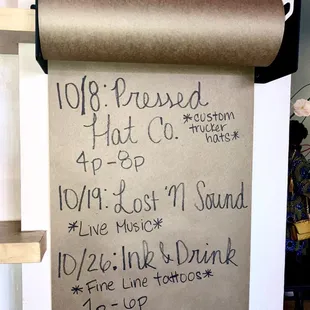 10/8: Pressed
Hat Co. *custom
trucker
hats*
4p-8p
10/19: Lost 'N Sound
*Live Music*
10/26: Ink & Drink
*Fine Line tattoos*
-6p